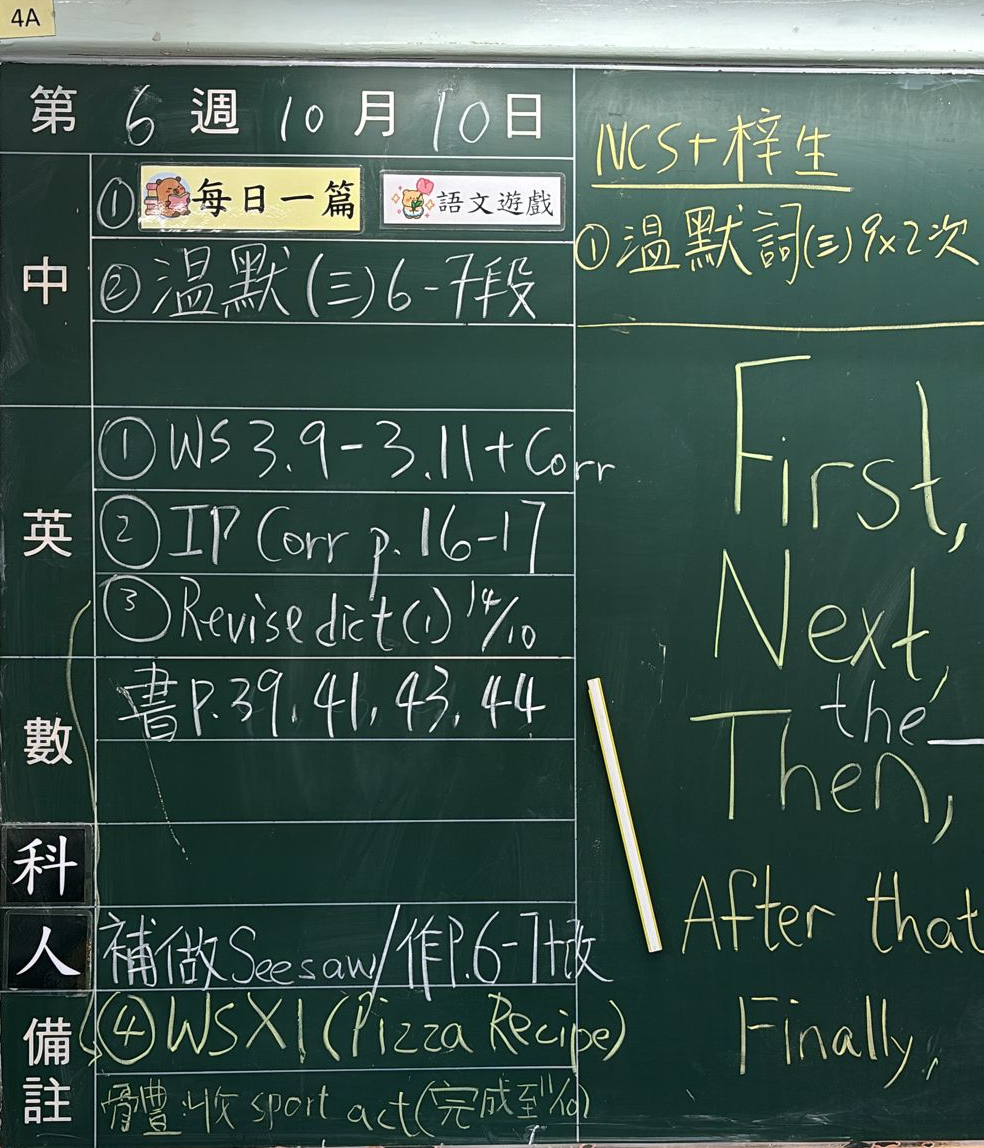 4A
第 6 週 10 月 10 日
中
① 每日一篇 語文遊戲
② 温默 (三) 6-7段
英
① WS 3.9-3.11 + Corr
② IP Corr p. 16-17
③ Revise dict (1) 14/10
數
書 P.39, 41, 43, 44
科
人
補做 Seesaw / 作P.6-7+改
備註
④ WS X1 (Pizza Recipe)
體: 收 sport act (完成至
NCS + 梓生
① 温默詞(三) 9x2次
First,
Next,
the
Then,
After that
Finally,